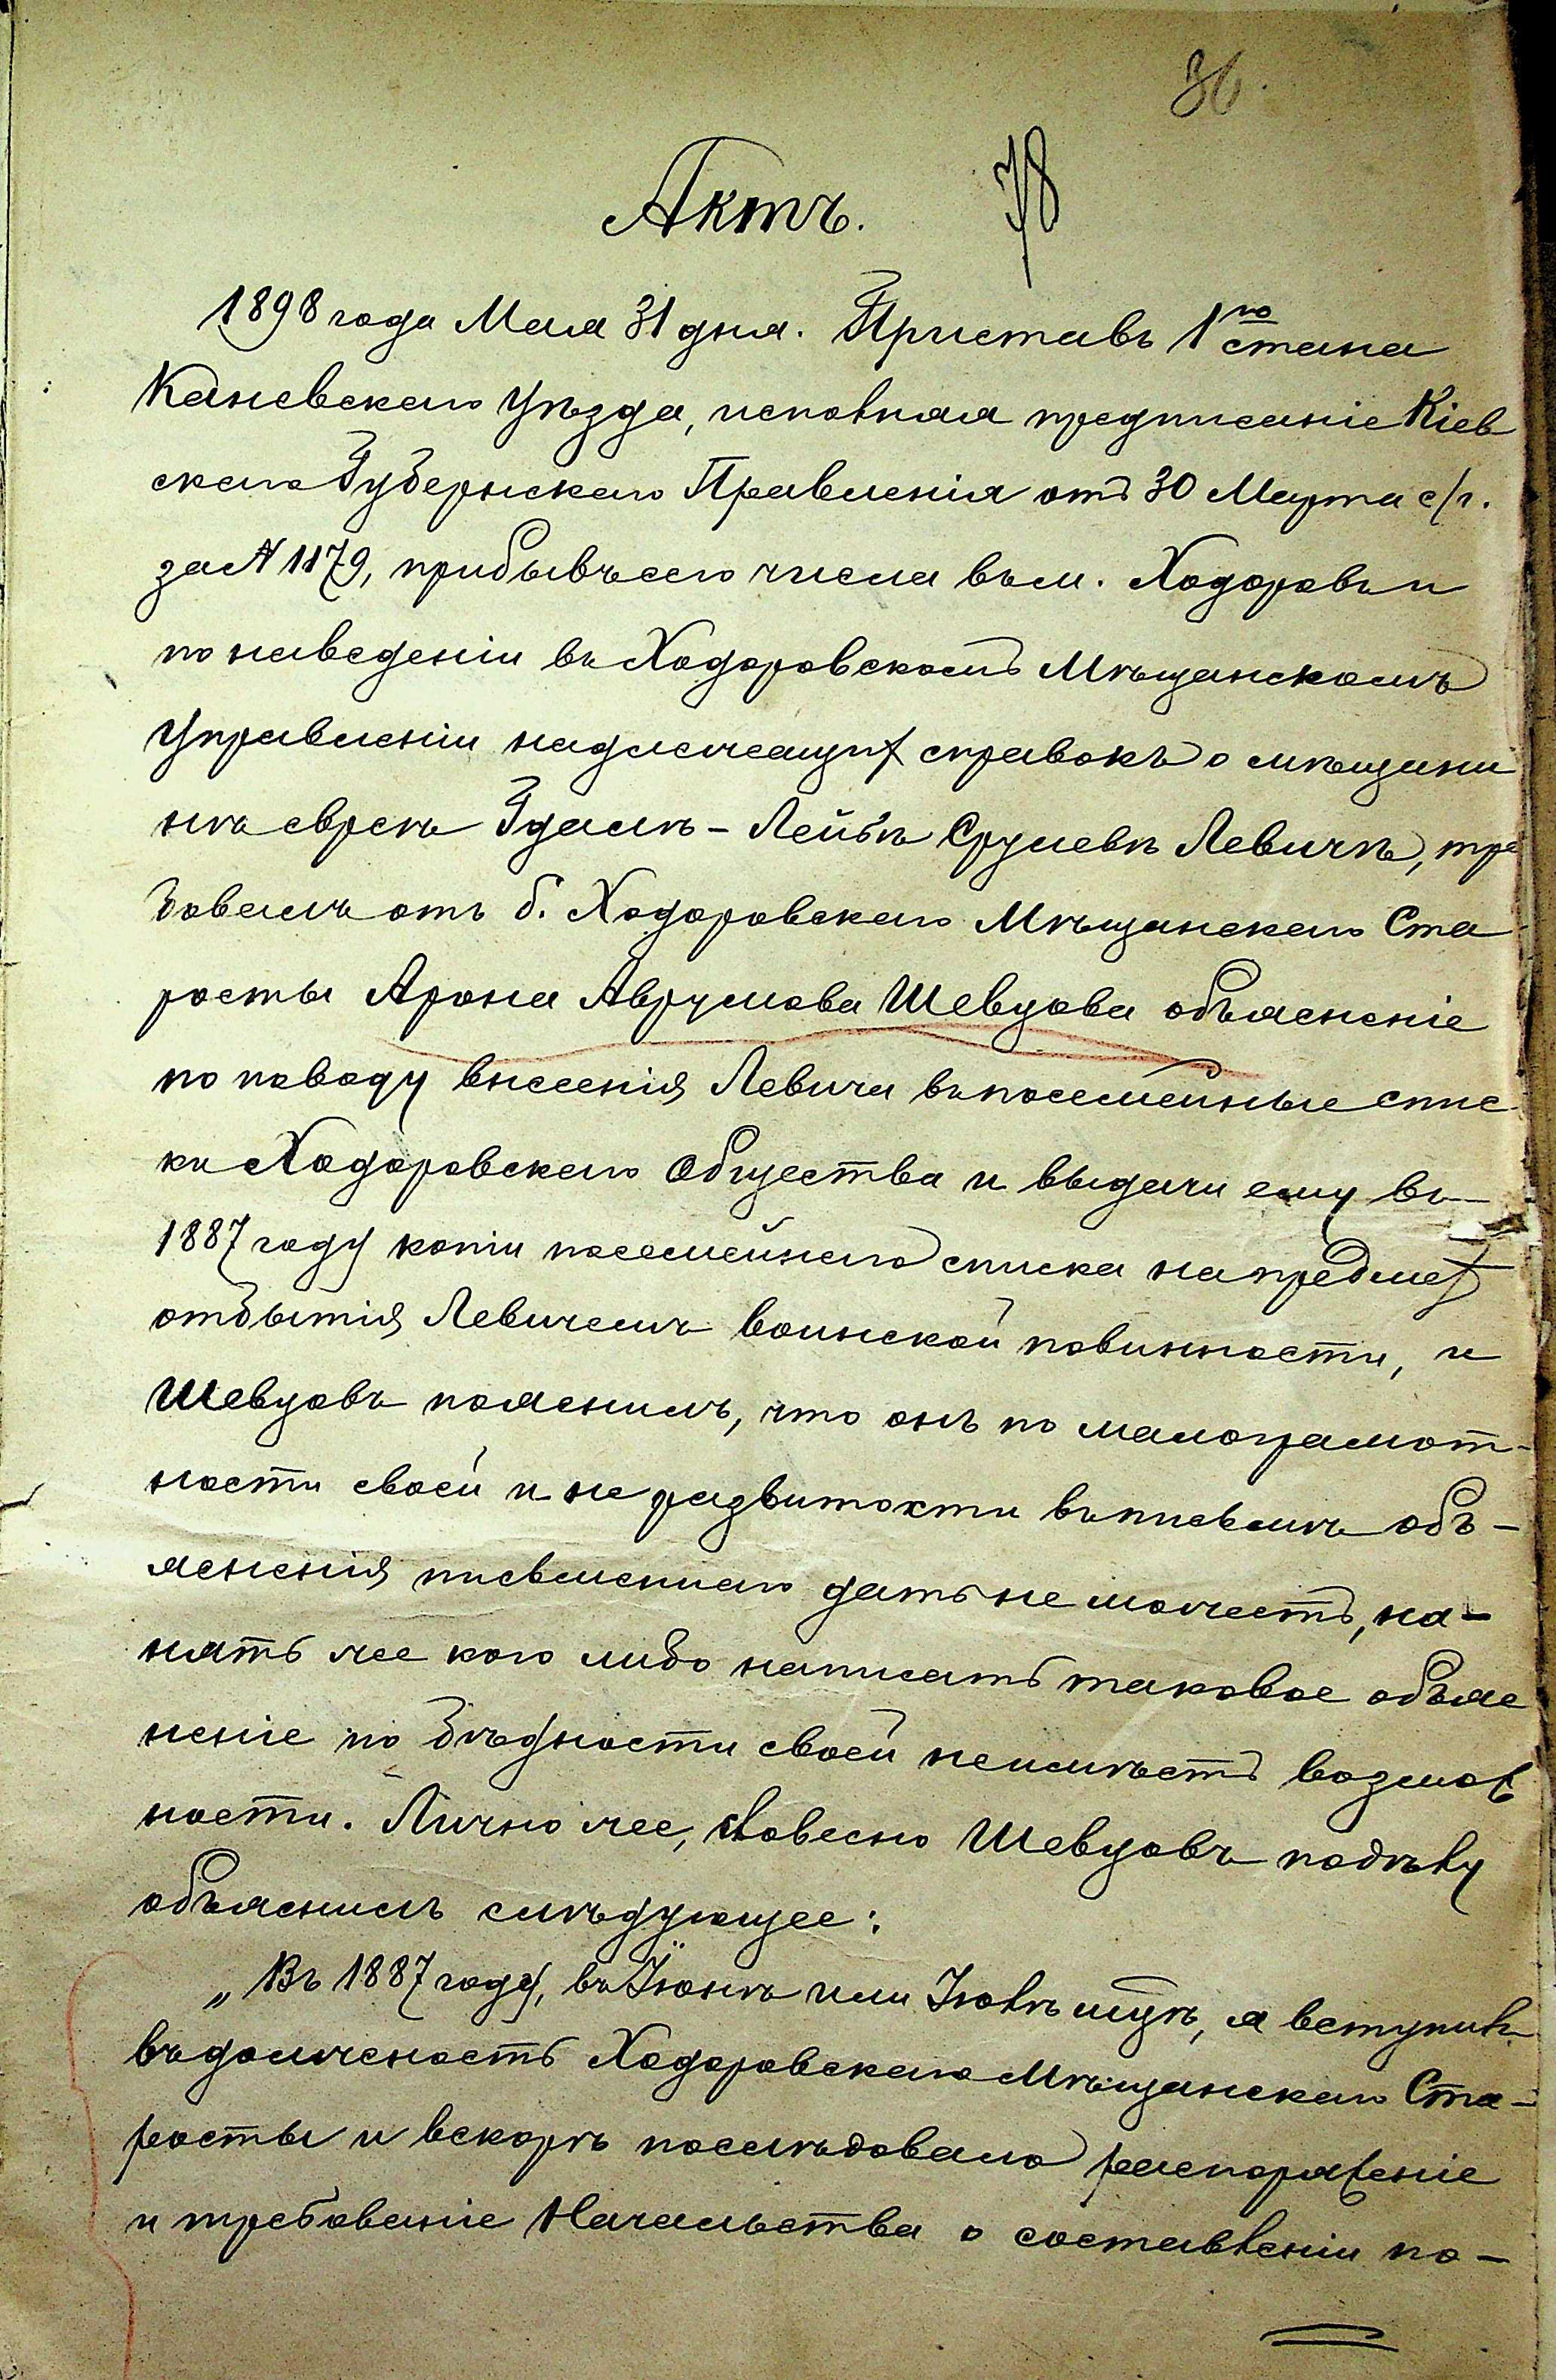 36.
78
Актъ.
1898 года Мая 31 дня. Приставъ 1го стана
Каневскаго Уѣзда, исполняя предписаніе Кіев
скаго Губернскаго Правленія отъ 30 Марта с/г.
за N 1179, прибывъ сего числа въ м. Ходоровъ и
по наведеніи въ Ходоровскомъ Мѣщанскомъ
Управленіи надлежащихъ справокъ о мѣщани
нѣ евреѣ Гдалѣ-Лейбѣ Срулевѣ Левичѣ, тре
бовалъ отъ б. Ходоровскаго Мѣщанскаго Ста
росты Арона Аврумова Шевцова объясненіе
по поводу внесенія Левича въ посемейные спис
ки Ходоровскаго Общества и выдачи ему въ
1887 году копіи посемейнаго списка на предметъ
отбытія Левичемъ воинской повинности, и
Шевцовъ пояснилъ, что онъ по малограмот-
ности своей и не развитости въ письмѣ объ-
ясненія письменнаго дать не можетъ, на-
нять же кого либо написать таковое объяс
неніе по бѣдности своей неимѣетъ возмож
ности. Лично же, словесно Шевцовъ по дѣлу
объяснилъ слѣдующее:
„Въ 1887 году, въ Іюнѣ или Іюлѣ мцѣ, я вступилъ
въ должность Ходоровскаго Мѣщанскаго Ста-
росты и вскорѣ послѣдовало распоряженіе
и требованіе Начальства о составленіи по-